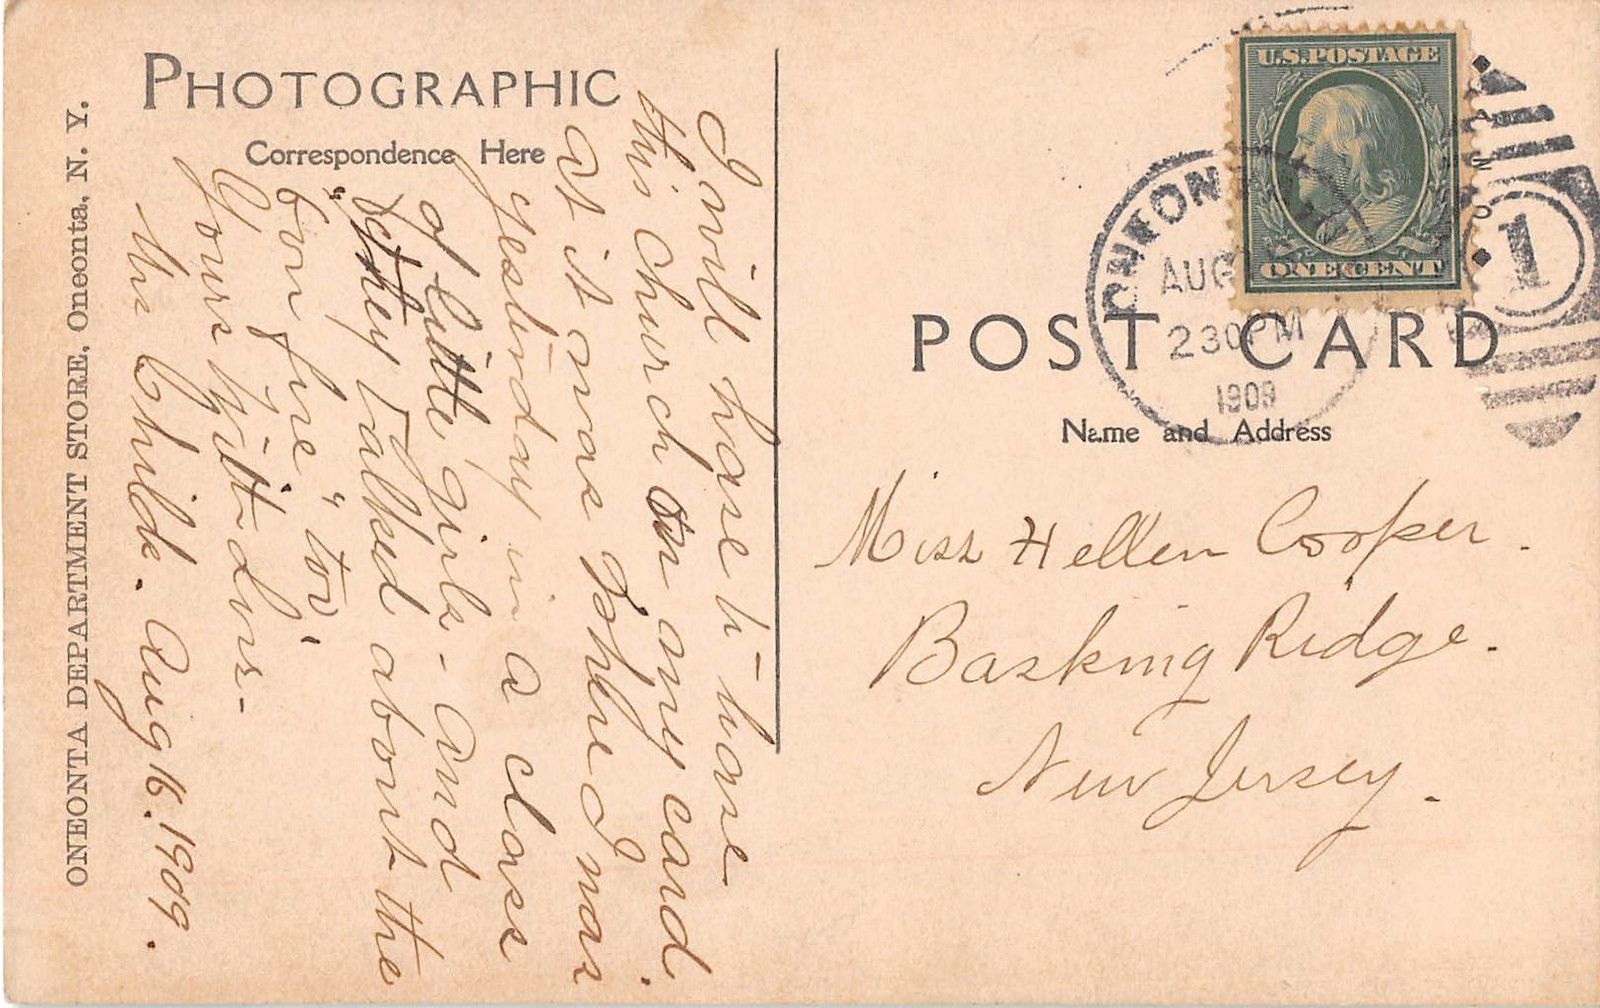 PHOTOGRAPHIC
Correspondence Here
ONEONTA DEPARTMENT STORE, Oneonta, N. Y.
I will have to have
this Church on my card.
at it was where I was
yesterday in a class
of little girls - and
they talked about the
"bon fire" too'
Yours with love -
Mr Childs. Aug 16. 1909.
U.S. POSTAGE
ONE CENT
AUG
230PM
1909
1
POST CARD
Name and Address
Miss Hellen Cooper.
Basking Ridge.
New Jersey.